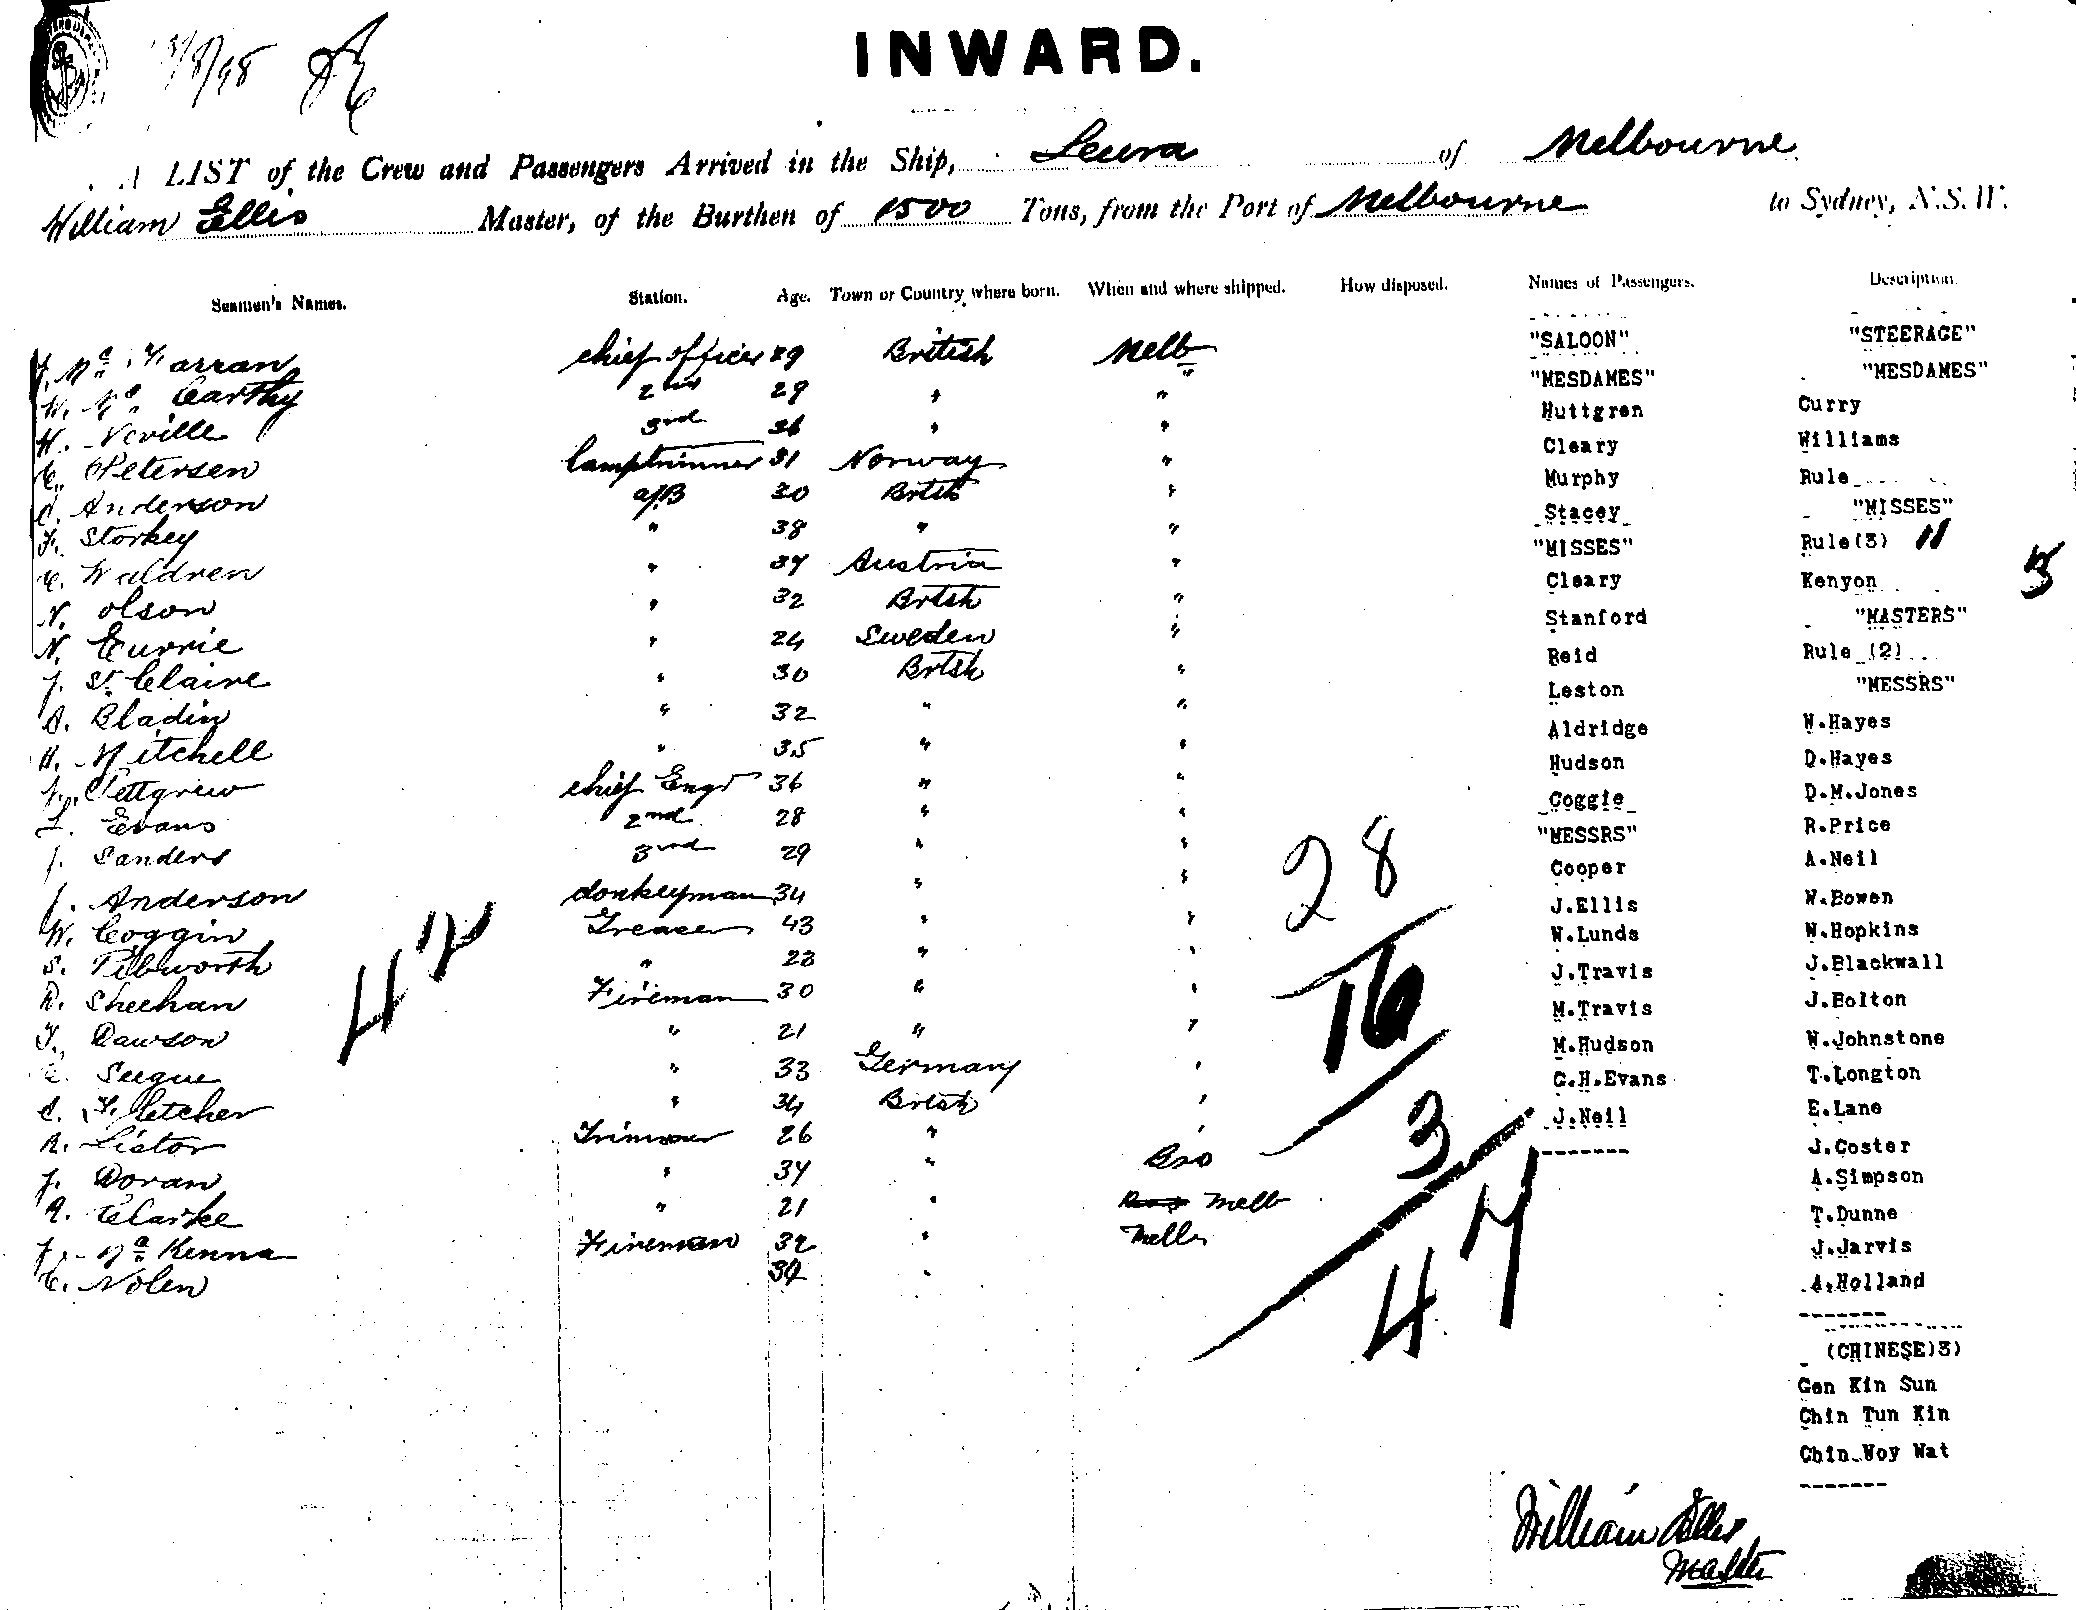 /8/98
INWARD.
A LIST of the Crew and Passengers Arrived in the Ship, Leura of Melbourne
William Ellis Master, of the Burthen of 1500 Tons, from the Port of Melbourne to Sydney, N.S.W.
Seamen's Names. Station. Age. Town or Country where born. When and where shipped. How disposed. Names of Passengers. Description.
"SALOON" "STEERAGE"
Farran chief officer 29 British Melb
"MESDAMES" "MESDAMES"
W. Mc Carthy 2nd 29 " "
Huttgren Curry
H. Neville 3rd " "
Cleary Williams
C. Petersen lamptrimmer 31 Norway "
Murphy Rule
C. Anderson a/B 30 Brtsh "
Stacey "MISSES"
F. Storkey " 38 " "
"MISSES" Rule(3) 11
C. Waldren " 37 Austria "
Cleary Kenyon
N. Olson " 32 Brtsh "
Stanford "MASTERS"
N. Currie " 24 Sweden "
Reid Rule (2)
J. St Claire " 30 Brtsh "
Leston "MESSRS"
A. Bladin " 32 " "
Aldridge W.Hayes
H. Mitchell " 35 " "
Hudson D.Hayes
Pettgrew chief Engr 36 " "
Coggie D.M.Jones
Evans 2nd 28 " "
"MESSRS" R.Price
J. Sanders 3rd 29 " "
28
Cooper A.Neil
J. Anderson donkeyman 34 " "
J.Ellis W.Bowen
W. Coggin Greaser 43 " "
W.Lunds W.Hopkins
S. Pibworth " 23 " "
J.Travis J.Blackwall
R. Sheehan Fireman 30 " "
42
16
M.Travis J.Bolton
F. Dawson " 21 " "
M.Hudson W.Johnstone
" 33 Germany "
C.H.Evans T.Longton
C. Fletcher " 34 Brtsh "
3
J.Neil E.Lane
R. Listor Trimmer 26 " "
J.Coster
J. Doran " 37 " Bro
A.Simpson
R. Clarke " 21 " Melb
T.Dunne
Mc Kenna Fireman 32 " Melb
47
J.Jarvis
C. Nolen "
A.Holland
(CHINESE)3)
Gen Kin Sun
Chin Tun Kin
Chin Woy Wat
William Ellis
Master